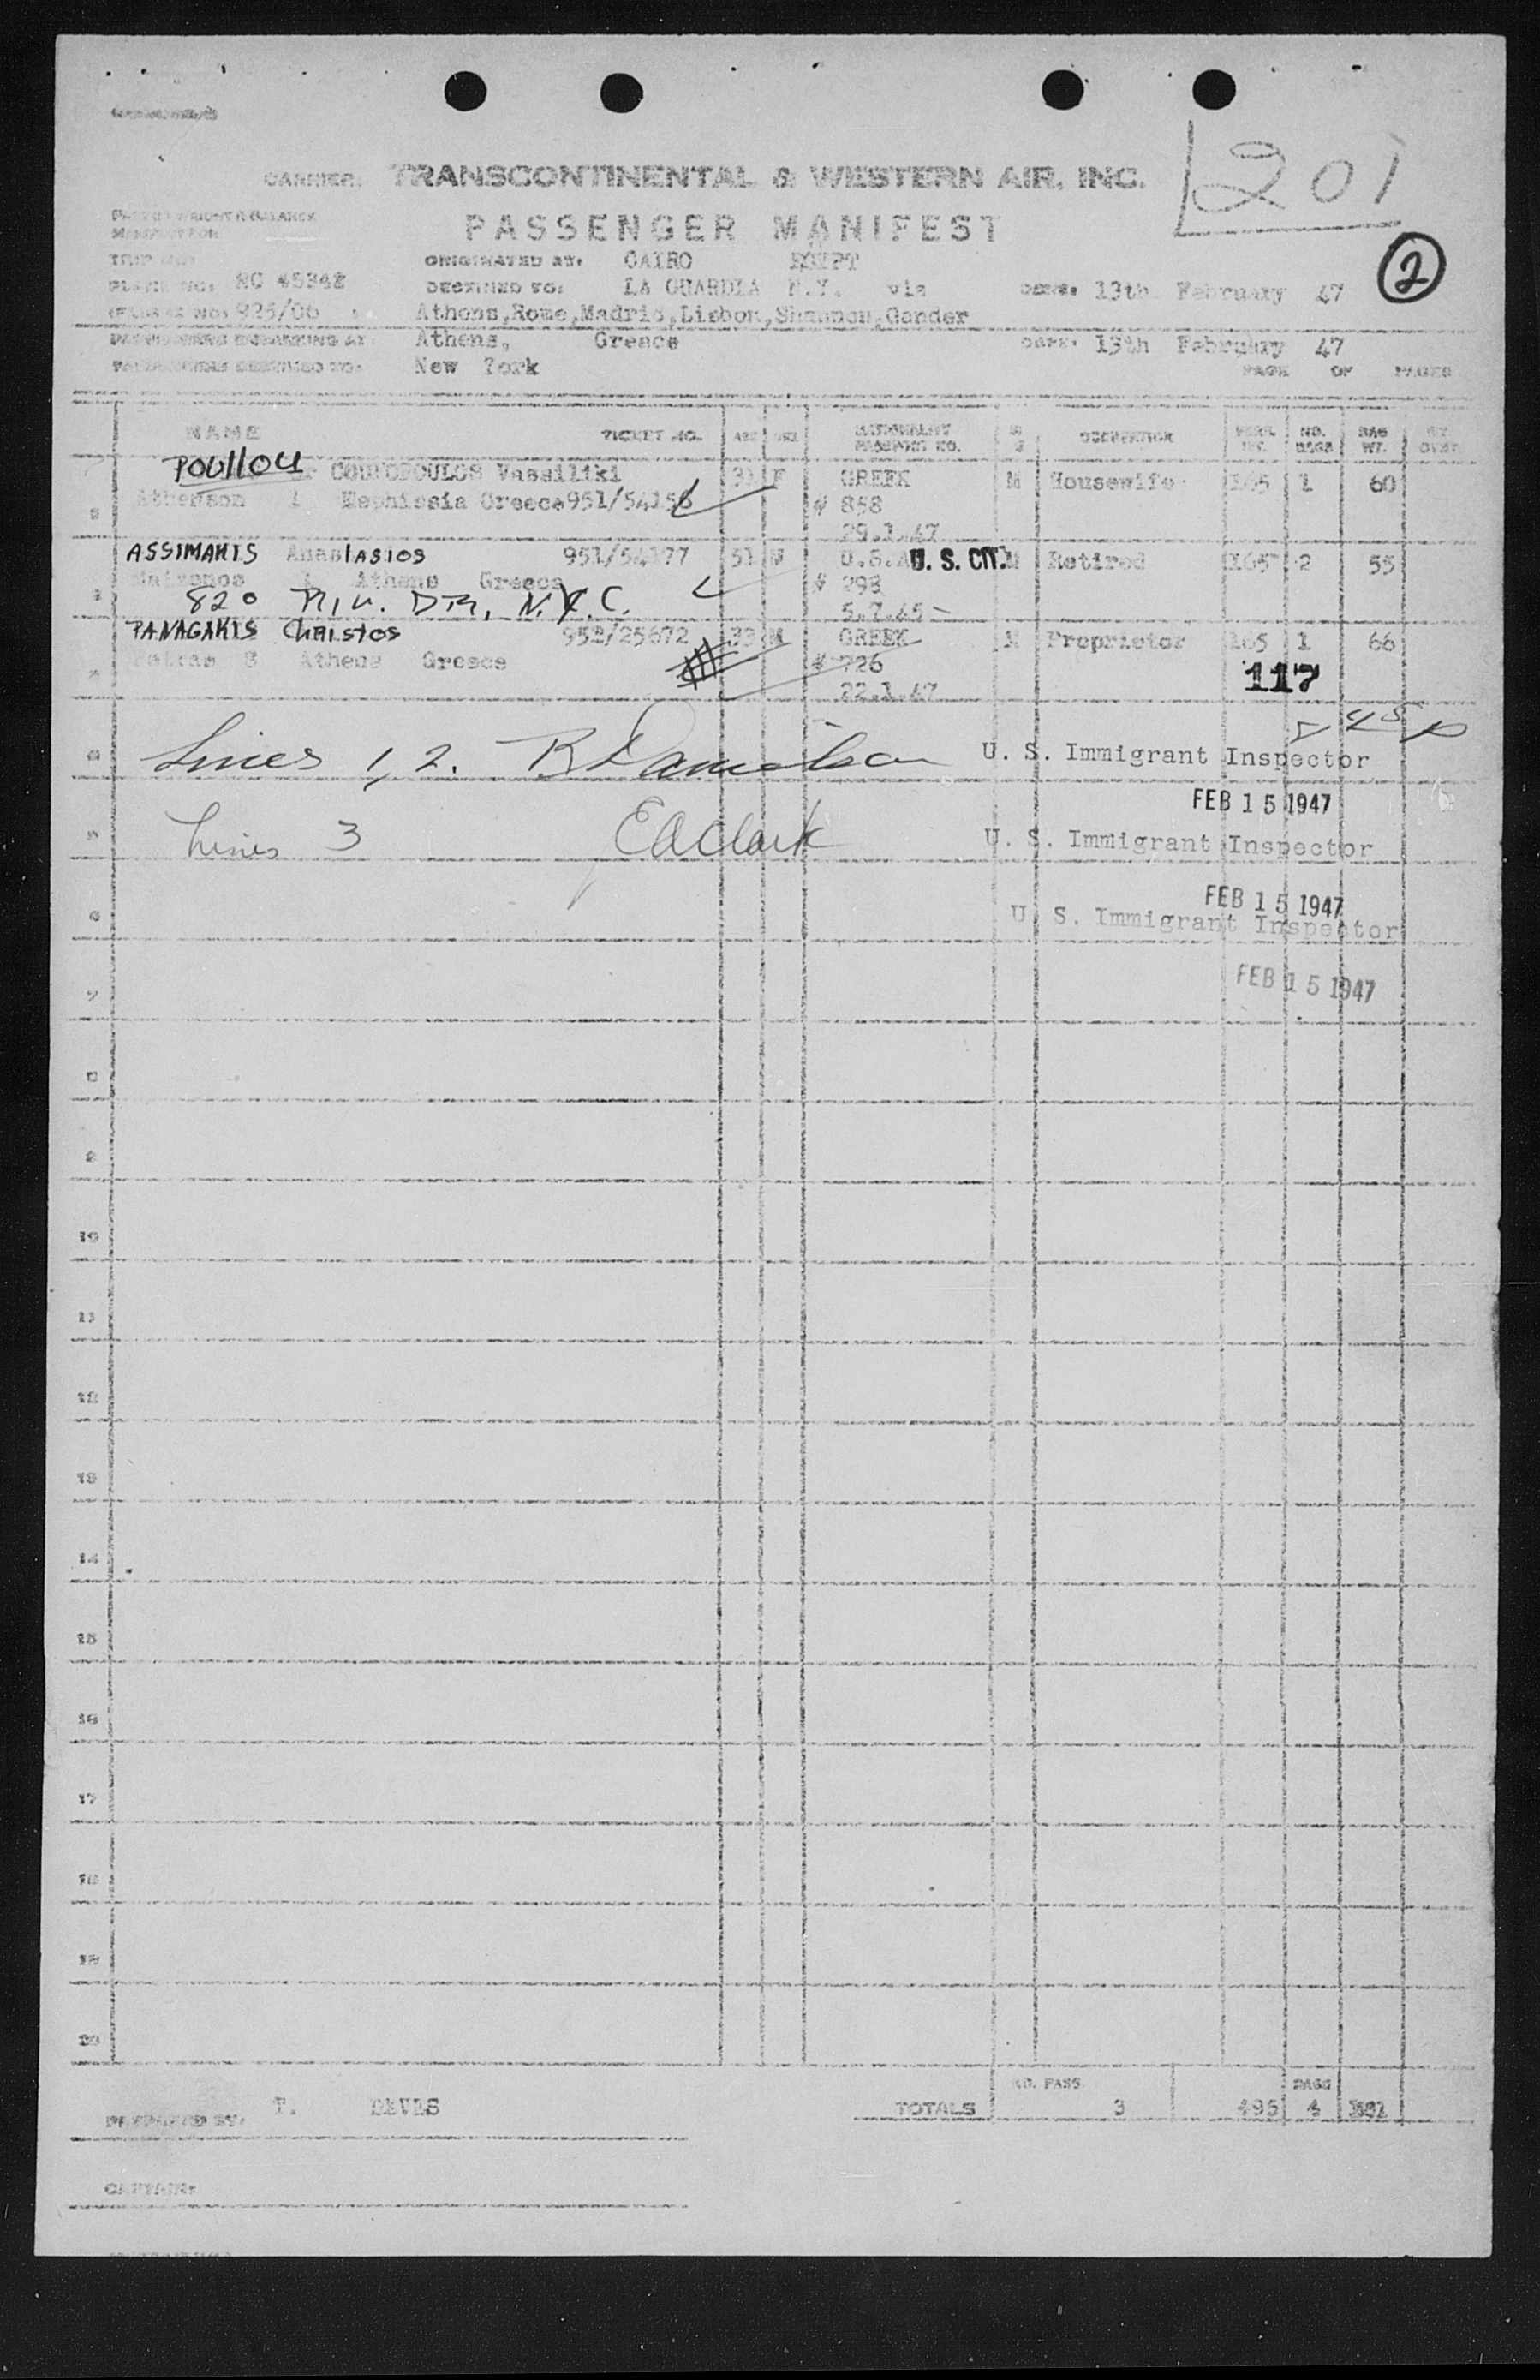 CARRIER: TRANSCONTINENTAL & WESTERN AIR, INC.
201
PASSENGER MANIFEST
2
TRIP NO:
ORIGINATED AT: CAIRO EGIPT
PLANE NO: NC 45342
DESTINED TO: LA GUARDIA N.Y. via
DATE: 13th February 47
925/06
Athens,Rome,Madrid,Lisbon,Shannon,Gander
PASSENGERS EMBARKING AT: Athens, Greece
DATE: 13th February 47
PASSENGERS DESTINED TO: New York
PAGE OF PAGES
NAME TICKET NO. AGE SEX NATIONALITY PASSPORT NO. OCCUPATION NO. BAGS BAG WT.
POULLOU Vassiliki 31 F GREEK M Housewife 165 1 60
Kephissia Greece 951/54156 # 858
29.1.47
ASSIMAKIS AnastASIOS 951/54177 51 U.S.A U. S. CIT. Retired 165 2 55
Athens Greece # 293
820 RIV. DR, N.Y.C. 5.7.45
PANAGAKIS Christos 952/25672 33 M GREEK M Proprietor 165 1 66
Patras 3 Athens Greece # 226
117
22.1.47
Lines 1, 2. U. S. Immigrant Inspector
FEB 15 1947
Lines 3 E A Clark U. S. Immigrant Inspector
FEB 15 1947
U. S. Immigrant Inspector
FEB 15 1947
10
11
12
13
14
15
16
17
18
19
20
NO. PASS. BAGS
PREPARED BY: T. DEVES
TOTALS 3 495 4 181
CAPTAIN: